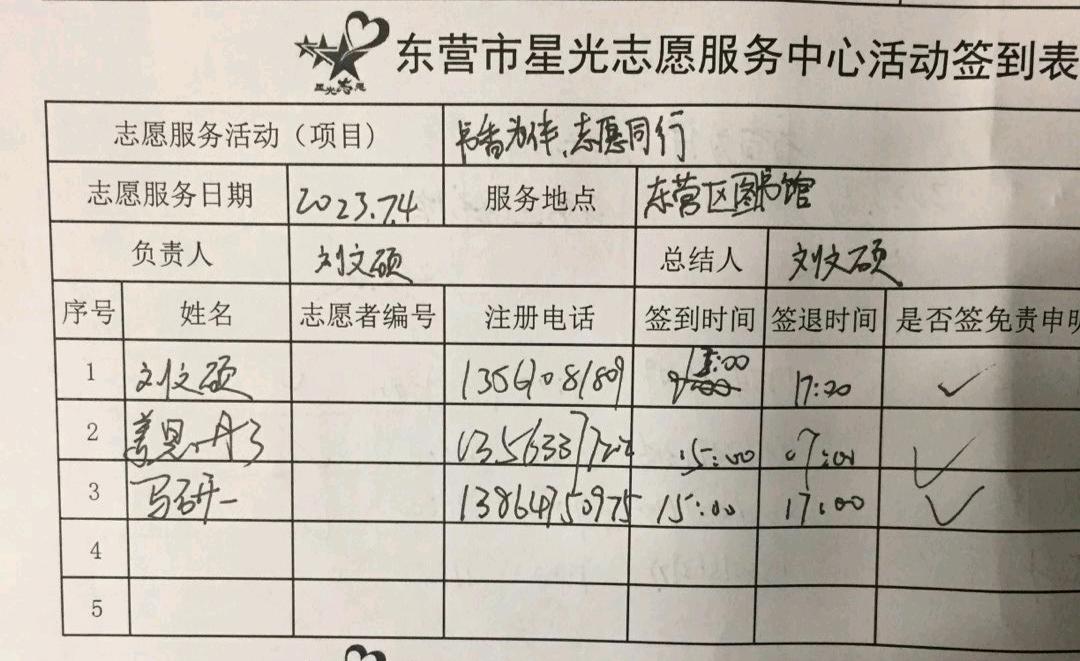 星光志愿
东营市星光志愿服务中心活动签到表
志愿服务活动（项目） 书香为伴、志愿同行
志愿服务日期 2023.7.4 服务地点 东营区图书馆
负责人 刘文硕 总结人 刘文硕
序号 姓名 志愿者编号 注册电话 签到时间 签退时间 是否签免责申明
1 刘文硕 15:00 17:20 ✓
2 15:00 17:00 ✓
3 马研一 13864750975 15:00 17:00 ✓
4
5